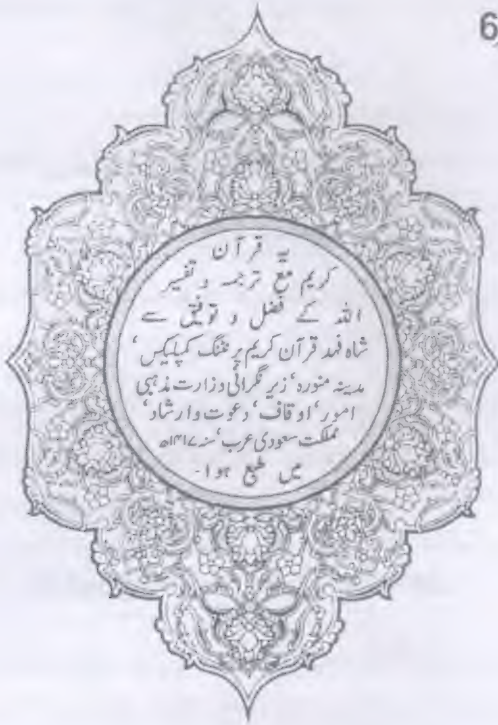 6
یہ قرآن
کریم مع ترجمہ و تفسیر
اللہ کے فضل و توفیق سے
شاہ فہد قرآن کریم پرنٹنگ کمپلیکس،
مدینہ منورہ، زیر نگرانی وزارت مذہبی
امور، اوقاف، دعوت وارشاد،
مملکت سعودی عرب، سنہ ۱۴۱۷ھ
میں طبع ہوا۔